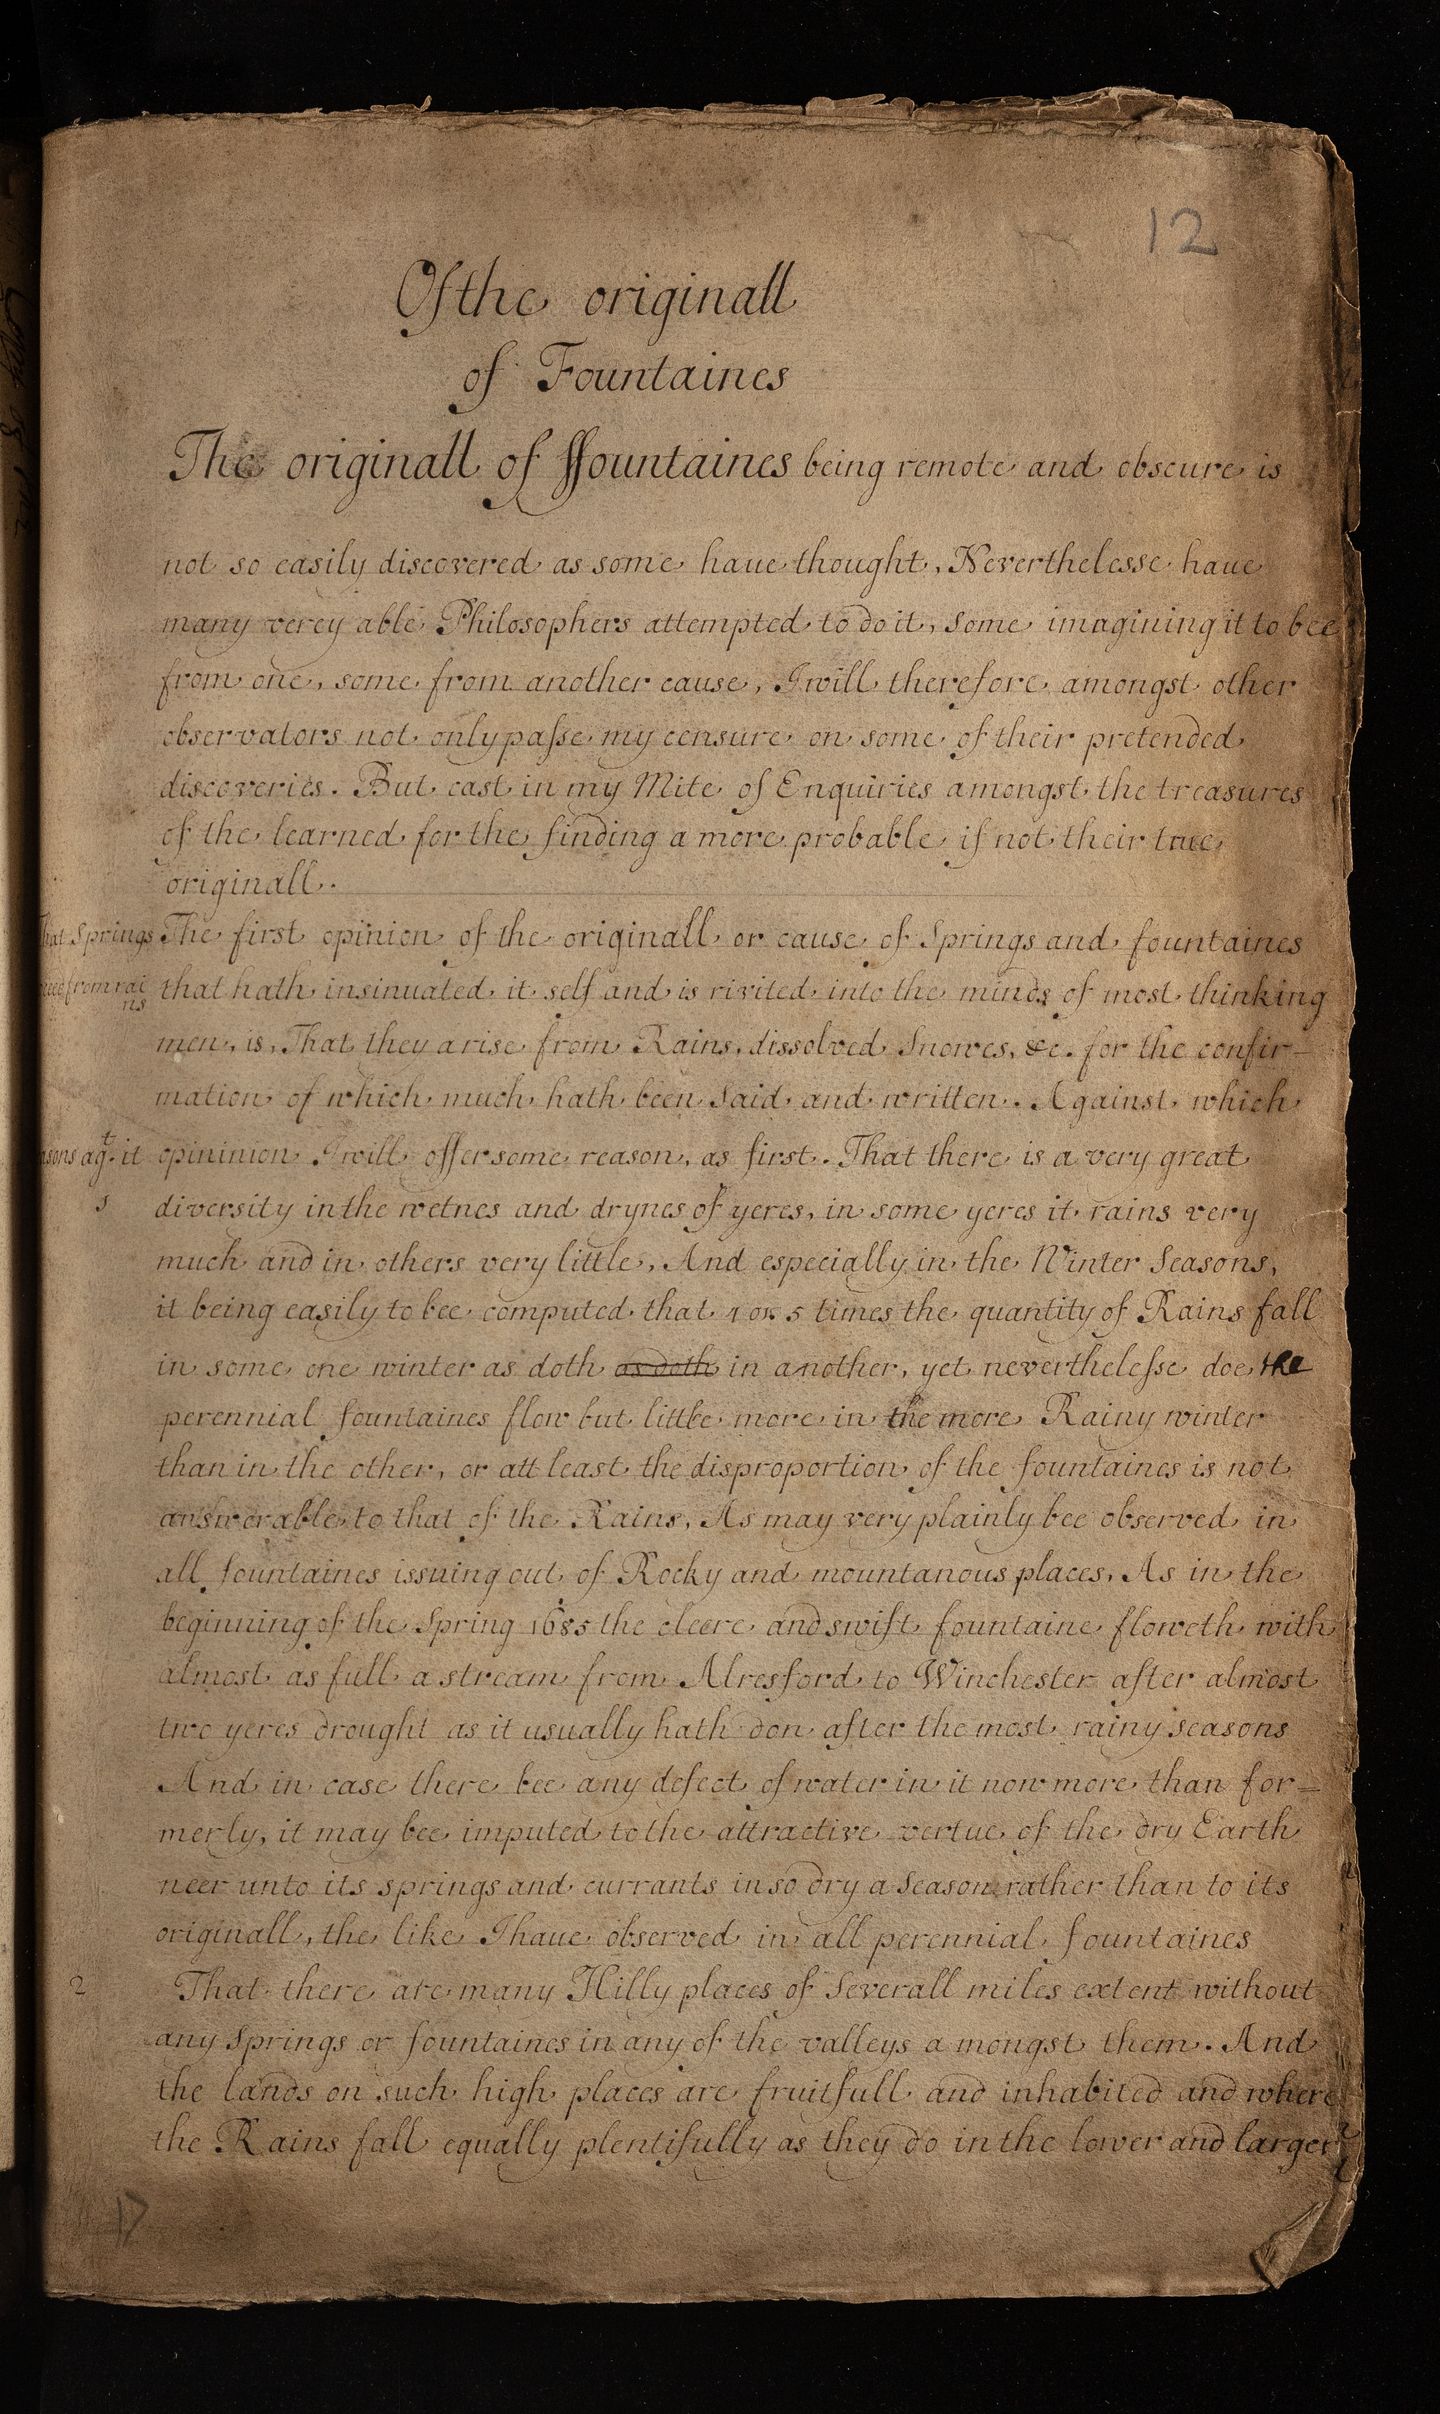 12
Of the originall
of Fountaines
The originall of ffountaines being remote and obscure is
not so easily discovered as some haue thought, Neverthelesse haue
many verey able Philosophers attempted to do it, some imagining it to bee
from one, some from another cause, I will therefore amongst other
observators not only passe my censure on some of their pretended
discoveries. But cast in my Mite of Enquiries amongst the treasures
of the learned for the finding a more probable if not their true
originall.
hat Springs The first opinion of the originall or cause of Springs and fountaines
from rai that hath insinuated it self and is rivited into the minds of most thinking
ns
men, is, That they arise from Rains, dissolved Snowes, &c. for the confir-
mation of which much hath been said and written. Against which
asons agt. it opininion I will offer some reason, as first. That there is a very great
diversity in the wetnes and drynes of yeres, in some yeres it rains very
much and in others very little, And especially in the Winter Seasons,
it being easily to bee computed that 4 or 5 times the quantity of Rains fall
in some one winter as doth as doth in another, yet neverthelesse doe the
perennial fountaines flow but little more in the more Rainy winter
than in the other, or att least the disproportion of the fountaines is not
answerable to that of the Rains, As may very plainly bee observed in
all fountaines issuing out of Rocky and mountanous places, As in the
beginning of the Spring 1685 the cleere and swift fountaine floweth with
almost as full a stream from Alresford to Winchester after almost
two yeres drought as it usually hath don after the most rainy seasons
And in case there bee any defect of water in it now more than for-
merly, it may bee imputed to the attractive vertue of the dry Earth
neer unto its springs and currants in so dry a season rather than to its
originall, the like I haue observed in all perennial fountaines
2 That there are many Hilly places of Severall miles extent without
any Springs or fountaines in any of the valleys amongst them. And
the lands on such high places are fruitfull and inhabited and where
the Rains fall equally plentifully as they do in the lower and larger
17